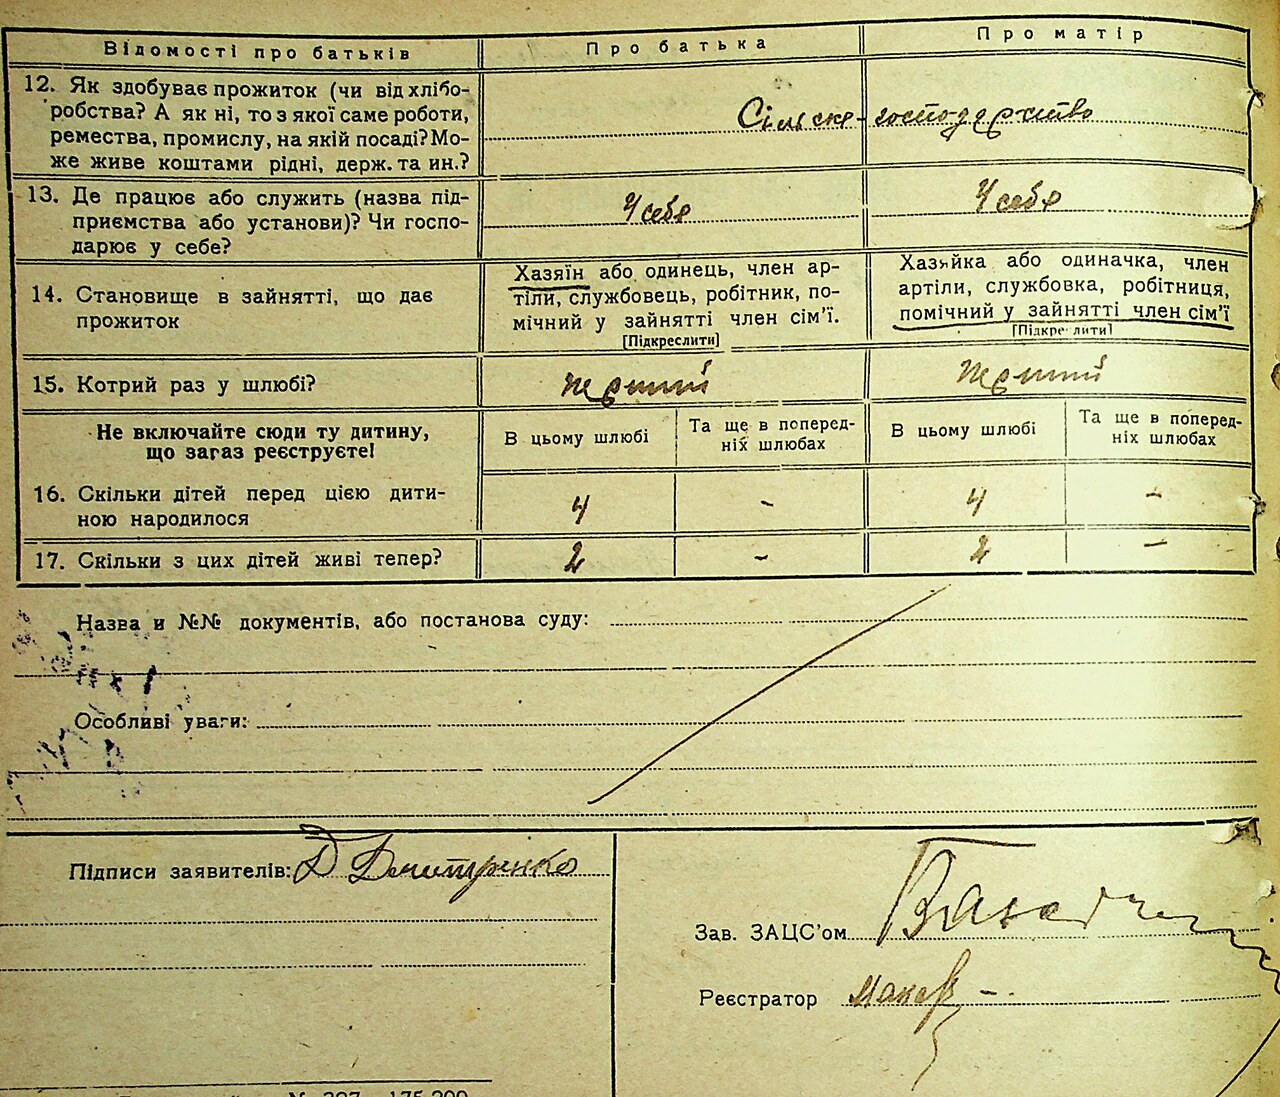 Відомості про батьків
Про батька
Про матір
12. Як здобуває прожиток (чи від хлібо-
робства? А як ні, то з якої саме роботи,
ремества, промислу, на якій посаді? Мо-
же живе коштами рідні, держ. та ин.?
Сільске-господархтво
13. Де працює або служить (назва під-
приємства або установи)? Чи госпо-
дарює у себе?
У себе
У себе
14. Становище в зайнятті, що дає
прожиток
Хазяїн або одинець, член ар-
тіли, службовець, робітник, по-
мічний у зайнятті член сім'ї.
[Підкреслити]
Хазяйка або одиначка, член
артіли, службовка, робітниця,
помічний у зайнятті член сім'ї
[Підкреслити]
15. Котрий раз у шлюбі?
перший
перший
Не включайте сюди ту дитину,
що загаз реєструєте!
В цьому шлюбі
Та ще в поперед-
ніх шлюбах
В цьому шлюбі
Та ще в поперед-
ніх шлюбах
16. Скільки дітей перед цією дити-
ною народилося
4
-
4
-
17. Скільки з цих дітей живі тепер?
2
-
2
-
Назва и №№ документів, або постанова суду:
Особливі уваги:
Підписи заявителів: Д Дмитренко
Зав. ЗАЦС'ом
Реєстратор
№ 327 175.200